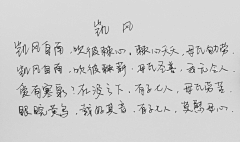 凯风
凯风自南，吹彼棘心。棘心夭夭，母氏劬劳。
凯风自南，吹彼棘薪。母氏圣善，我无令人。
爰有寒泉？在浚之下。有子七人，母氏劳苦。
睍睆黄鸟，载好其音。有子七人，莫慰母心。